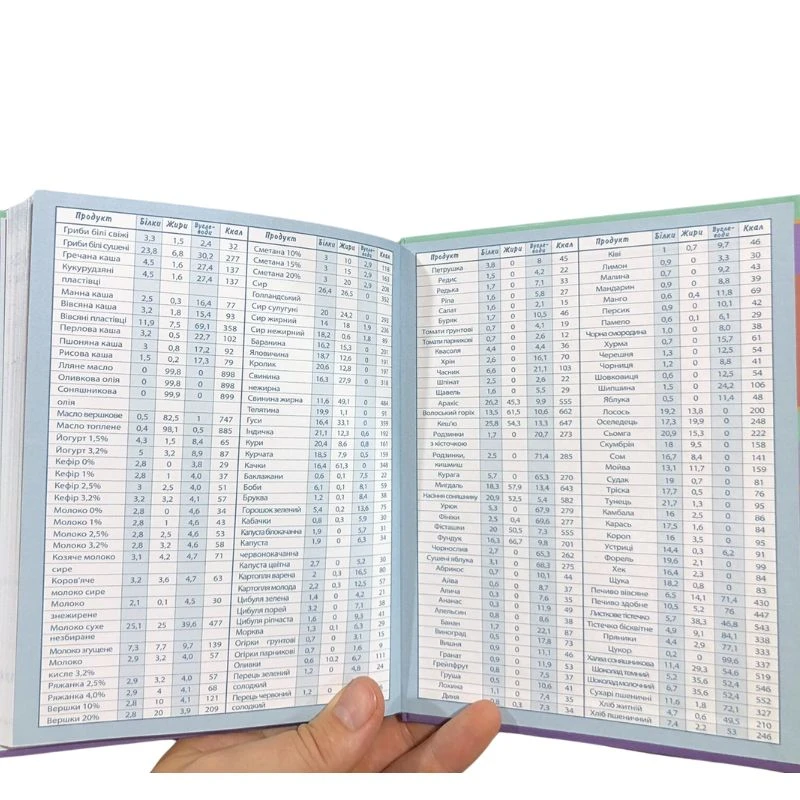 Продукт Білки Жири Вугле-води Ккал
Гриби білі свіжі 3,3 1,5 2,4 32
Гриби білі сушені 23,8 6,8 30,2 277
Гречана каша 4,5 1,6 27,4 137
Кукурудзяні 4,5 1,6 27,4 137
пластівці
Манна каша 2,5 0,3 16,4 77
Вівсяна каша 3,2 1,8 15,4 93
Вівсяні пластівці 11,9 7,5 69,1 358
Перлова каша 3,2 0,5 22,7 102
Пшоняна каша 3 0,8 17,2 92
Рисова каша 1,5 0,2 17,3 79
Лляне масло 0 99,8 0 898
Оливкова олія 0 99,8 0 898
Соняшникова 0 99,9 0 899
олія
Масло вершкове 0,5 82,5 1 747
Масло топлене 0,4 98,1 0,5 885
Йогурт 1,5% 4,3 1,5 8,4 65
Йогурт 3,2% 5 3,2 8,9 87
Кефір 0% 2,8 0 3,8 29
Кефір 1% 2,8 1 4,0 37
Кефір 2,5% 3 2,5 4,0 51
Кефір 3,2% 3,2 3,2 4,1 57
Молоко 0% 2,8 0 4,6 34
Молоко 1% 2,8 1 4,6 43
Молоко 2,5% 2,8 2,5 4,6 53
Молоко 3,2% 2,8 3,2 4,6 58
Козяче молоко 3,1 4,2 4,7 71
сире
Коров'яче 3,2 3,6 4,7 63
молоко сире
Молоко 2,1 0,1 4,5 30
знежирене
Молоко сухе 25,1 25 39,6 477
незбиране
Молоко згущене 7,3 7,7 9,7 139
Молоко 2,9 3,2 4,0 57
кисле 3,2%
Ряжанка 2,5% 2,9 3,2 4,0 57
Ряжанка 4,0% 2,9 4 4,1 68
Вершки 10% 2,8 10 4,1 121
Вершки 20% 2,8 20 3,9 209
Продукт Білки Жири Вугле-води Ккал
Сметана 10% 3 10 2,9 118
Сметана 15% 3 15 2,9 163
Сметана 20% 3 20 2,9 208
Сир 26,4 26,5 0 352
Голландський
Сир сулугуні 20 24,2 0 293
Сир жирний 14 18 1,9 236
Сир нежирний 18,2 0,6 1,8 89
Баранина 16,2 15,3 0 201
Яловичина 18,7 12,6 0 191
Кролик 12,8 0 197
Свинина 16,3 27,9 0 318
нежирна
Свинина жирна 11,6 49,1 0 484
Телятина 19,9 1,1 0 91
Гуси 16,4 33,1 0 359
Індичка 21,1 12,3 0,6 192
Кури 20,4 8,6 0,8 161
Курчата 18,5 7,9 0,4 159
Качки 16,4 61,3 0 348
Баклажани 0,6 0,1 7,5 22
Боби 6,1 0,1 8,1 59
Бруква 1,2 0,1 8,4 38
Горошок зелений 5,4 0,2 13,6 75
Кабачки 0,8 0,3 5,9 30
Капуста білокачанна 1,9 0 5,7 31
Капуста 1,9 0 6,3 34
червонокачанна
Капуста цвітна 2,7 0 5,2 30
Картопля варена 2 0,3 16,5 80
Картопля молода 2,2 0,3 12,5 57
Цибуля зелена 1,4 0 4,2 21
Цибуля порей 3,2 0 7,1 38
Цибуля ріпчаста 1,6 0 9,3 41
Морква 1,3 0,1 6,3 29
Огірки ґрунтові 0,7 0 3,1 15
Огірки парникові 0,7 0 1,6 9
Оливки 0,6 10,2 6,7 111
Перець зелений 1,2 0 4,8 24
солодкий
Перець червоний 1,2 0
солодкий
Продукт Білки Жири Вугле-води Ккал
Петрушка 3,8 0 8 45
Редис 1,5 0 4,2 22
Редька 1,7 0 7,1 33
Ріпа 1,6 0 5,8 27
Салат 1,6 0 2,1 15
Буряк 1,7 0 10,5 46
Томати ґрунтові 0,7 0 4,1 19
Томати парникові 0,7 0 2,6 12
Квасоля 4,4 0 4,4 36
Хрін 2,6 0 16,1 70
Часник 6,6 0 21,1 103
Шпінат 2,5 0 2,6 22
Щавель 1,6 0 5,5 29
Арахіс 26,2 45,3 9,9 555
Волоський горіх 13,5 61,5 10,6 662
Кеш'ю 25,8 54,3 13,3 647
Родзинки 1,7 0 70,7 273
з кісточкою
Родзинки, 2,5 0 71,4 285
кишмиш
Курага 5,7 0 65,3 270
Мигдаль 18,3 57,9 13,4 643
Насіння соняшнику 20,9 52,5 5,4 582
Урюк 5,3 0 67,9 279
Фініки 2,5 0,4 69,6 277
Фісташки 20 50,5 7,3 555
Фундук 16,3 66,7 9,8 701
Чорнослив 2,7 0 65,3 262
Сушені яблука 3,1 0 68,3 275
Абрикос 0,7 0 10,1 44
Айва 0,6 0 8,7 37
Алича 0,2 0 7,1 34
Ананас 0,3 0 11,9 49
Апельсин 0,8 0 8,6 38
Банан 1,7 0 22,1 87
Виноград 0,5 0 17,8 73
Вишня 0,9 0 11,1 46
Гранат 0,9 0 11,9 53
Грейпфрут 0,8 0 7,5 37
Груша 0,5 0 10,6 41
Лохина 1,1 0 7,4 35
Диня 0,8 0,3 7,3 34
Продукт Білки Жири Вугле-води Ккал
Ківі 1 0,7 9,7 46
Лимон 0,9 0 3,3 30
Малина 0,7 0 9,2 43
Мандарин 0,9 0 8,8 39
Манго 0,6 0,4 11,8 69
Персик 0,9 0 10,1 42
Памело 0,6 0,1 6,1 29
Чорна смородина 1,0 0 8,0 38
Хурма 0,7 0 15,7 61
Черешня 1,3 0 12,5 54
Чорниця 1,2 0 8,8 41
Шовковиця 0,6 0 12,5 54
Шипшина 1,5 0 24,2 106
Яблука 0,5 0 11,4 48
Лосось 19,2 13,8 0 200
Оселедець 17,3 19,9 0 248
Сьомга 20,9 15,3 0 222
Скумбрія 18 9,5 0 158
Сом 16,7 8,4 0 141
Мойва 13,1 11,7 0 159
Судак 19 0,7 0 81
Тріска 17,7 0,5 0 76
Тунець 21,7 1,3 0 95
Камбала 16 2,5 0 86
Карась 17,5 1,6 0 84
Короп 16 3,5 0 95
Устриці 14,4 0,3 6,2 91
Форель 19,6 2,1 0 99
Хек 16,4 2,3 0 84
Щука 18,2 0,8 0 83
Печиво вівсяне 6,5 14,1 71,4 430
Печиво здобне 10,5 5,2 76 447
Листкове тістечко 5,7 38,3 46,8 543
Тістечко бісквітне 4,9 9,1 84,1 338
Пряники 4,4 2,9 77,1 333
Цукор 0,2 0 99,6 337
Халва соняшникова 11,4 29,3 54,6 519
Шоколад темний 5,2 35,6 52,4 546
Шоколад молочний 6,7 35,6 52,4 552
Сухарі пшеничні 11,6 1,8 72,1 327
Хліб житній 4,7 0,6 49,5 210
Хліб пшеничний 7,4 2,2 53 246